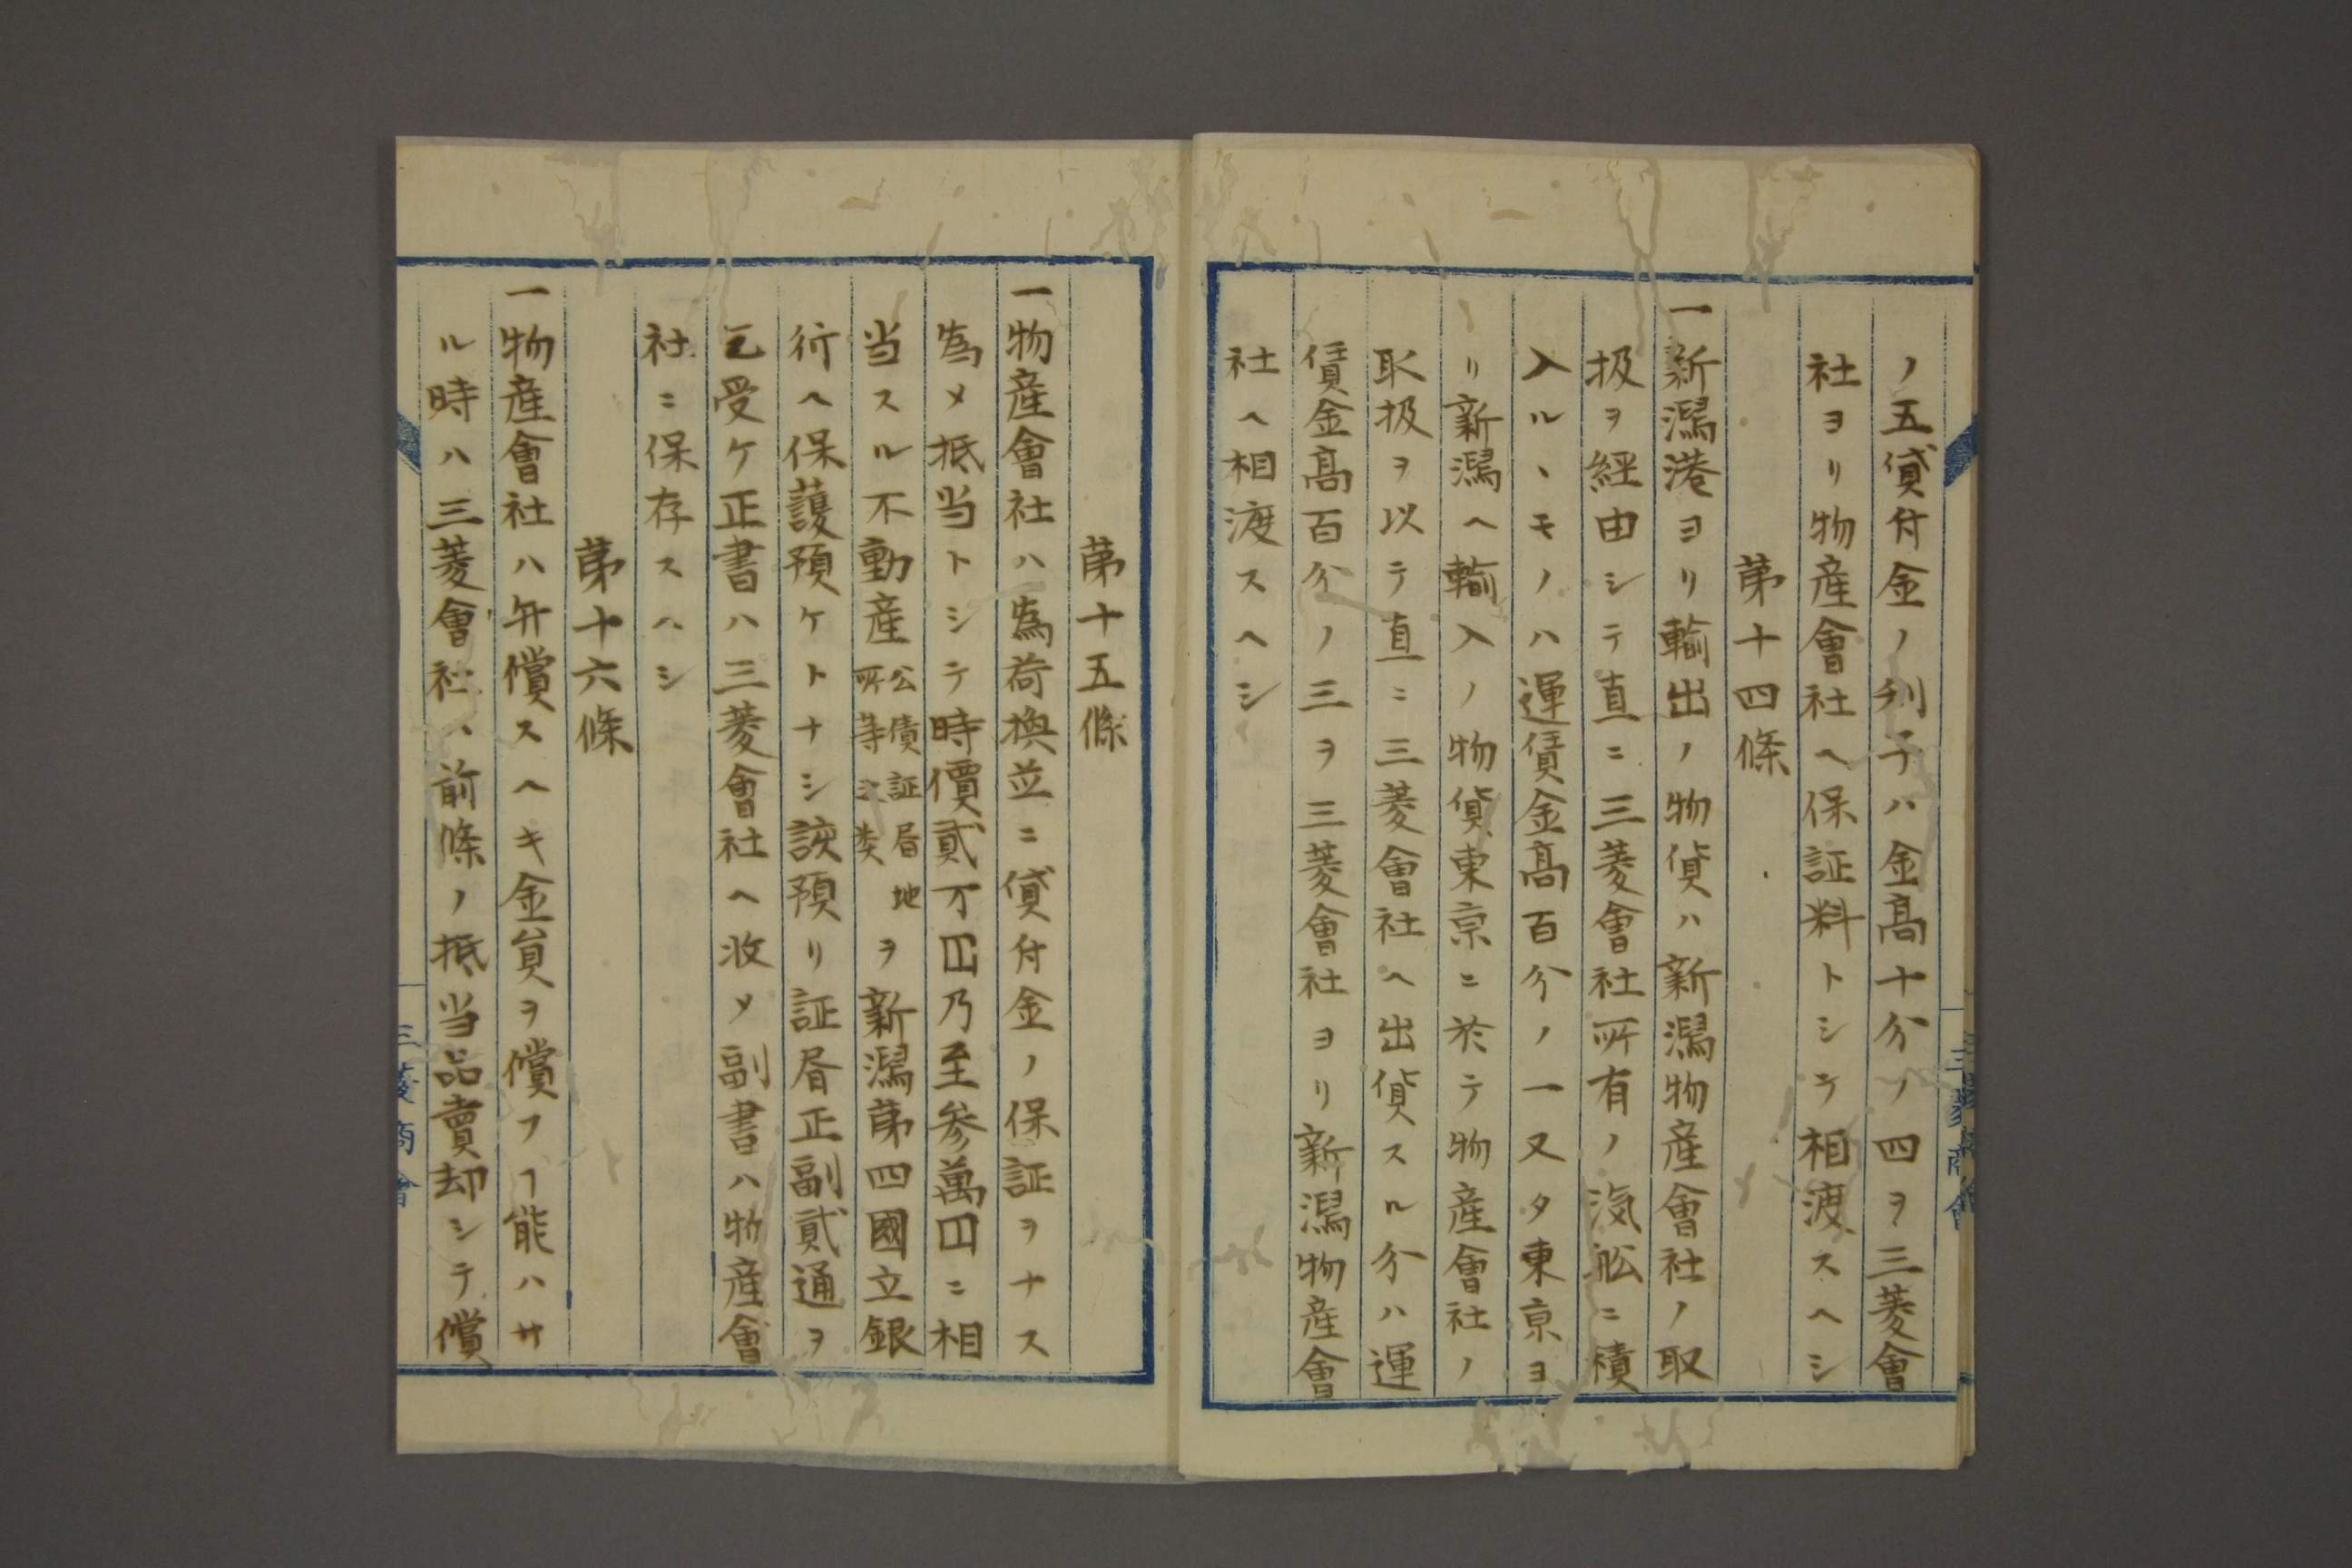 ノ五貸付金ノ利子ハ金高十分ノ四ヲ三菱會
社ヨリ物産會社ヘ保証料トシテ相渡スヘシ
第十四條
一新潟港ヨリ輸出ノ物貨ハ新潟物産會社ノ取
扱ヲ經由シテ直ニ三菱會社所有ノ滊舩ニ積
入ルヽモノハ運賃金高百分ノ一又タ東京ヨ
リ新潟ヘ輸入ノ物貨東京ニ於テ物産會社ノ
取扱ヲ以テ直ニ三菱會社ヘ出貨スル分ハ運
賃金高百分ノ三ヲ三菱會社ヨリ新潟物産會
社ヘ相渡スヘシ
第十五條
一物産會社ハ為荷換並ニ貸付金ノ保証ヲナス
為メ抵当トシテ時價貳万円乃至参萬円ニ相
当スル不動産公債証書地所等之類ヲ新潟第四國立銀
行ヘ保護預ケトナシ該預リ証書正副貳通ヲ
乞受ケ正書ハ三菱會社ヘ收メ副書ハ物産會
社ニ保存スヘシ
第十六條
一物産會社ハ弁償スヘキ金員ヲ償フヿ能ハサ
ル時ハ三菱會社ハ前條ノ抵当品賣却シテ償
三菱商會
三菱商會